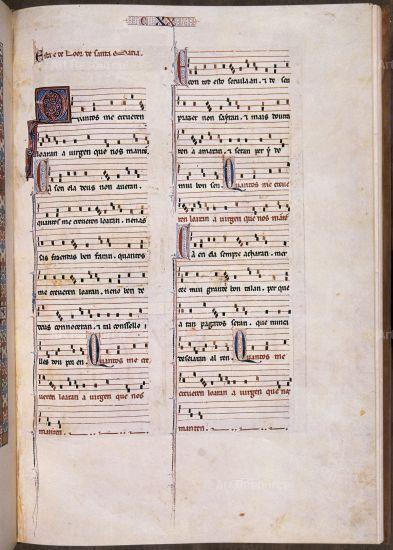 CXX
Esta e de loor de santa maria.
Quantos me creueren
loaran a uirgen que nos manten.
Ca sen ela deus non aueran.
quantos me creueren loaran. nen as
sas fazendas ben faran. quantos
me creueren loaran. neno ben de
deus connoceran. e tal consello
lles dou por en. Quantos me cre
ueren loaran a uirgen que nos
manten.
E con tod esto seruilaan. e de seu
prazer non sayran. e mais doutra
ren a amaran. e seran per y de
mui bon sen. Quantos me creue
ren loaran a uirgen que nos mant
Ca en ela sempre acharan. mer
cee mui grand e bon talan. per que
a tan pagados seran. que nunca
deseiaran al ren. Quantos me
creueren loaran a uirgen que nos
manten.